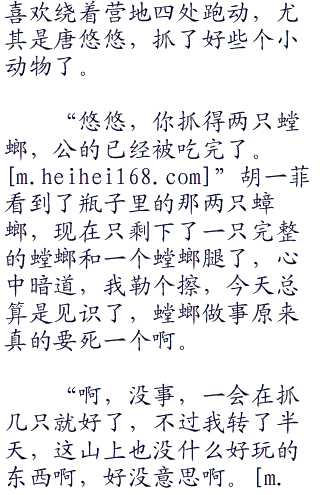 喜欢绕着营地四处跑动，尤
其是唐悠悠，抓了好些个小
动物了。
“悠悠，你抓得两只螳
螂，公的已经被吃完了。
[m.heihei168.com]”胡一菲
看到了瓶子里的那两只蟑
螂，现在只剩下了一只完整
的螳螂和一个螳螂腿了，心
中暗道，我勒个擦，今天总
算是见识了，螳螂做事原来
真的要死一个啊。
“啊，没事，一会在抓
几只就好了，不过我转了半
天，这山上也没什么好玩的
东西啊，好没意思啊。[m.